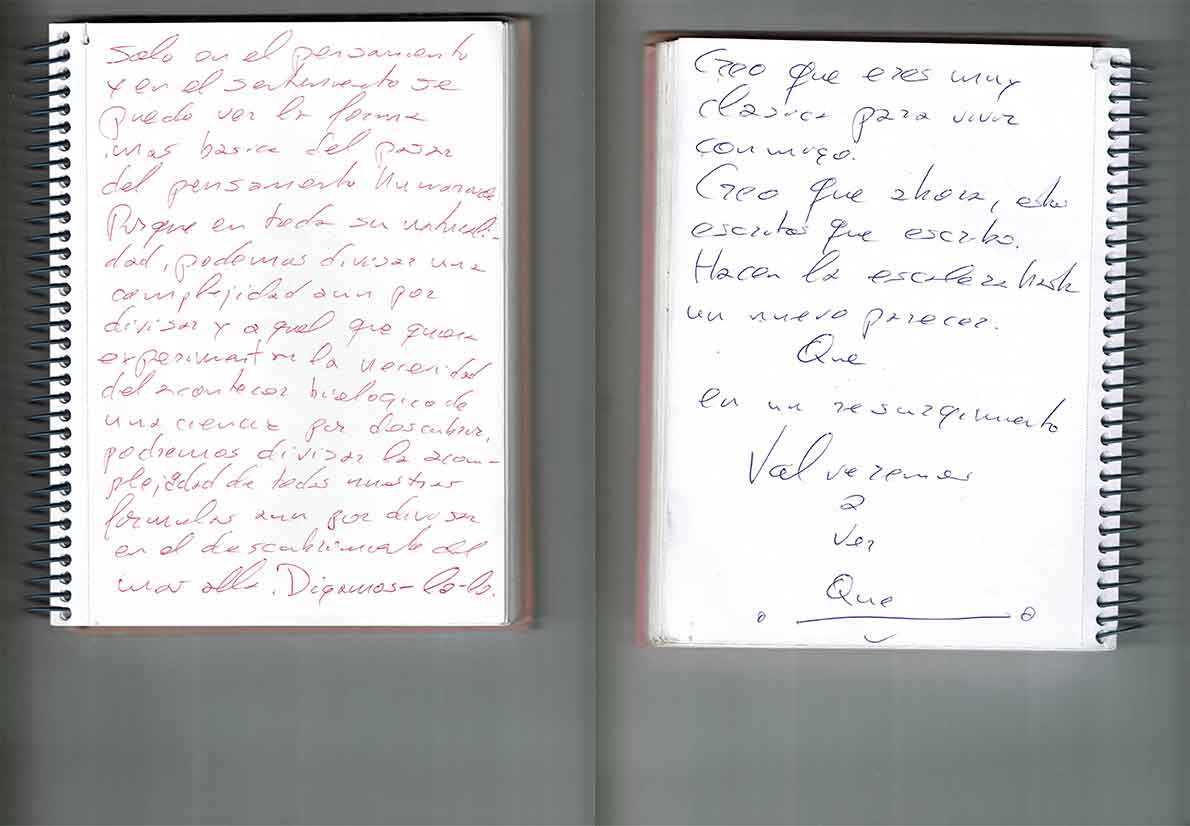 Solo en el pensamiento
y en el sentimiento se
puede ver la forma
mas basica del pasar
del pensamento humano
Porque en toda su naturali-
dad, podemos divisar una
complejidad aun por
divisar y a quel que quiera
experimentar la necesidad
del acontecer biologico de
una ciencia por descubrir,
podremos divisar la acom-
plejidad de todas nuestras
formulas aun por divisar
en el descubrimiento del
mas alla. Digamos-lo-lo.
Creo que eres muy
clasica para vivir
conmigo.
Creo que ahora, estos
escritos que escribo.
Hacen la escalera hasta
un nuevo parecer.
Que
en un resurgimiento
Val veremos
a
ver
Que